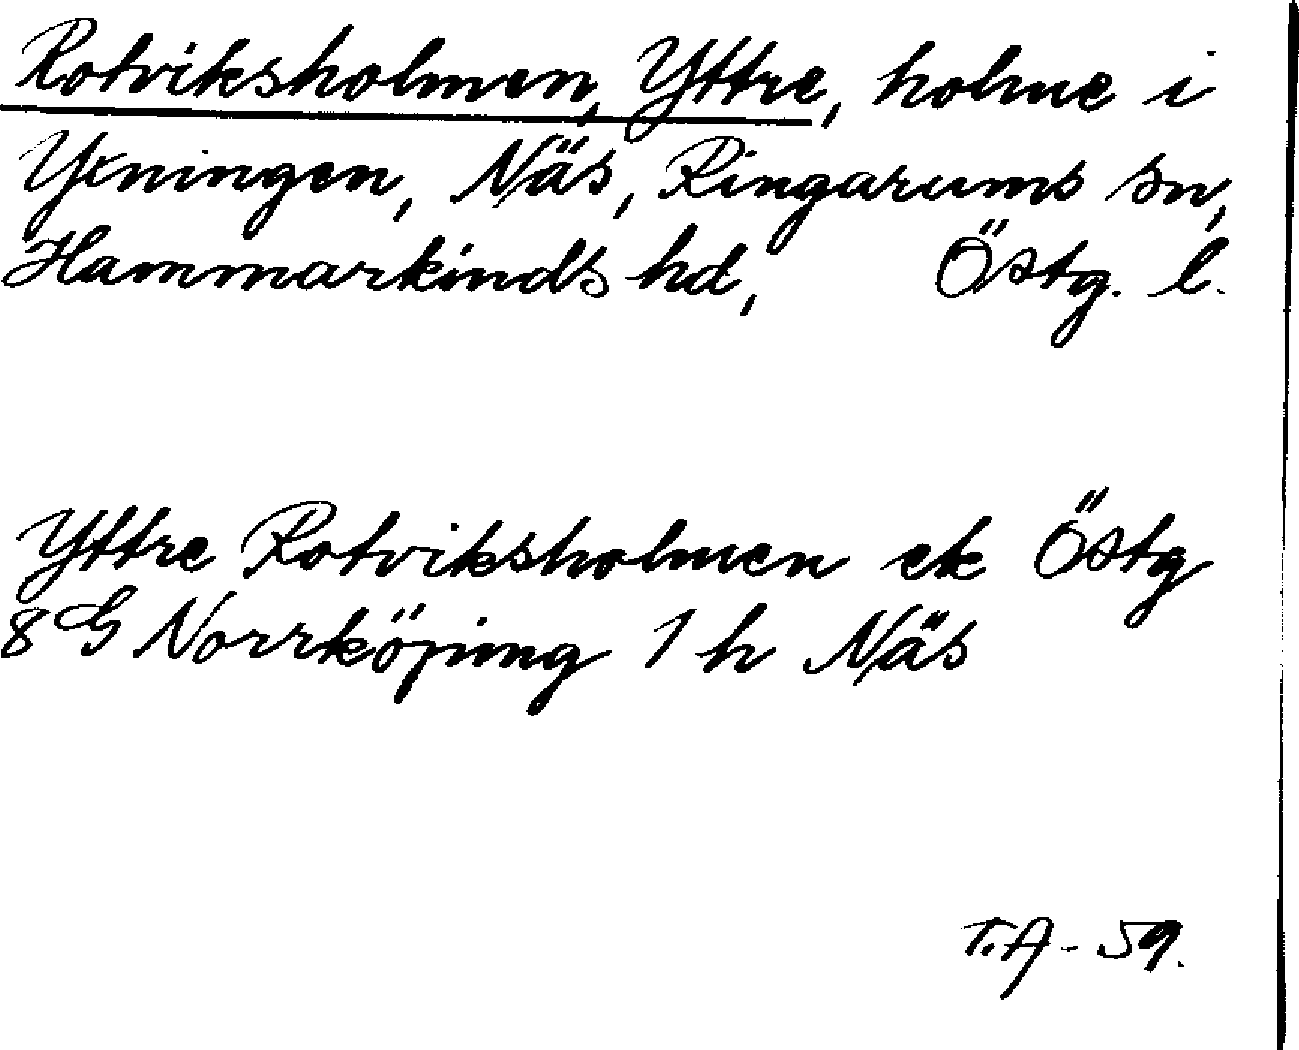 Rotviksholmen, Yttre, holme i
Yxningen, Näs, Ringarums sn,
Hammarkinds hd, Östg. l.
Yttre Rotviksholmen ek Östg
8 G Norrköping 1 h Näs
T.A - 59.